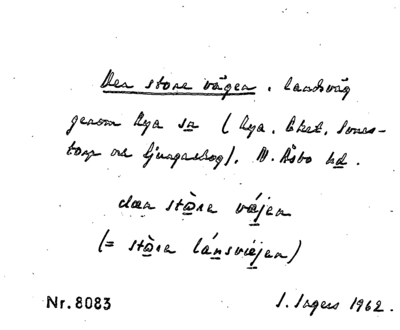 Den store vägen. landsväg
genom Rya sn (Rya, Eket, Tones-
torp och Ljungaskog). N. Åsbo hd.
dæn stòre vájen
(= stòre lánsvéjen)
Nr. 8083 I. Ingers 1962.